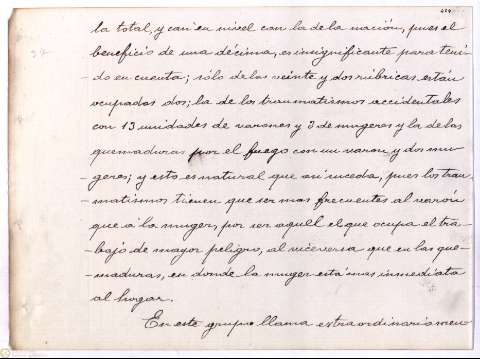 la total, y casi en nivel con la de la nación, pues el
beneficio de una décima, es insignificante para teni-
-do en cuenta; sólo de las veinte y dos rúbricas, están
ocupadas dos; la de los traumatismos accidentales
con 13 unidades de varones y 3 de mugeres y la de las
quemaduras por el fuego con un varon y dos mu-
-geres; y esto es natural que asi suceda, pues los trau-
-matismos tienen que ser mas frecuentes al varón
que á la muger, por ser aquell el que ocupa el tra-
-bajo de mayor peligro, al viceversa que en las que-
-maduras, en donde la muger está mas inmediata
al hogar.
En este grupo llama extraordinariamen